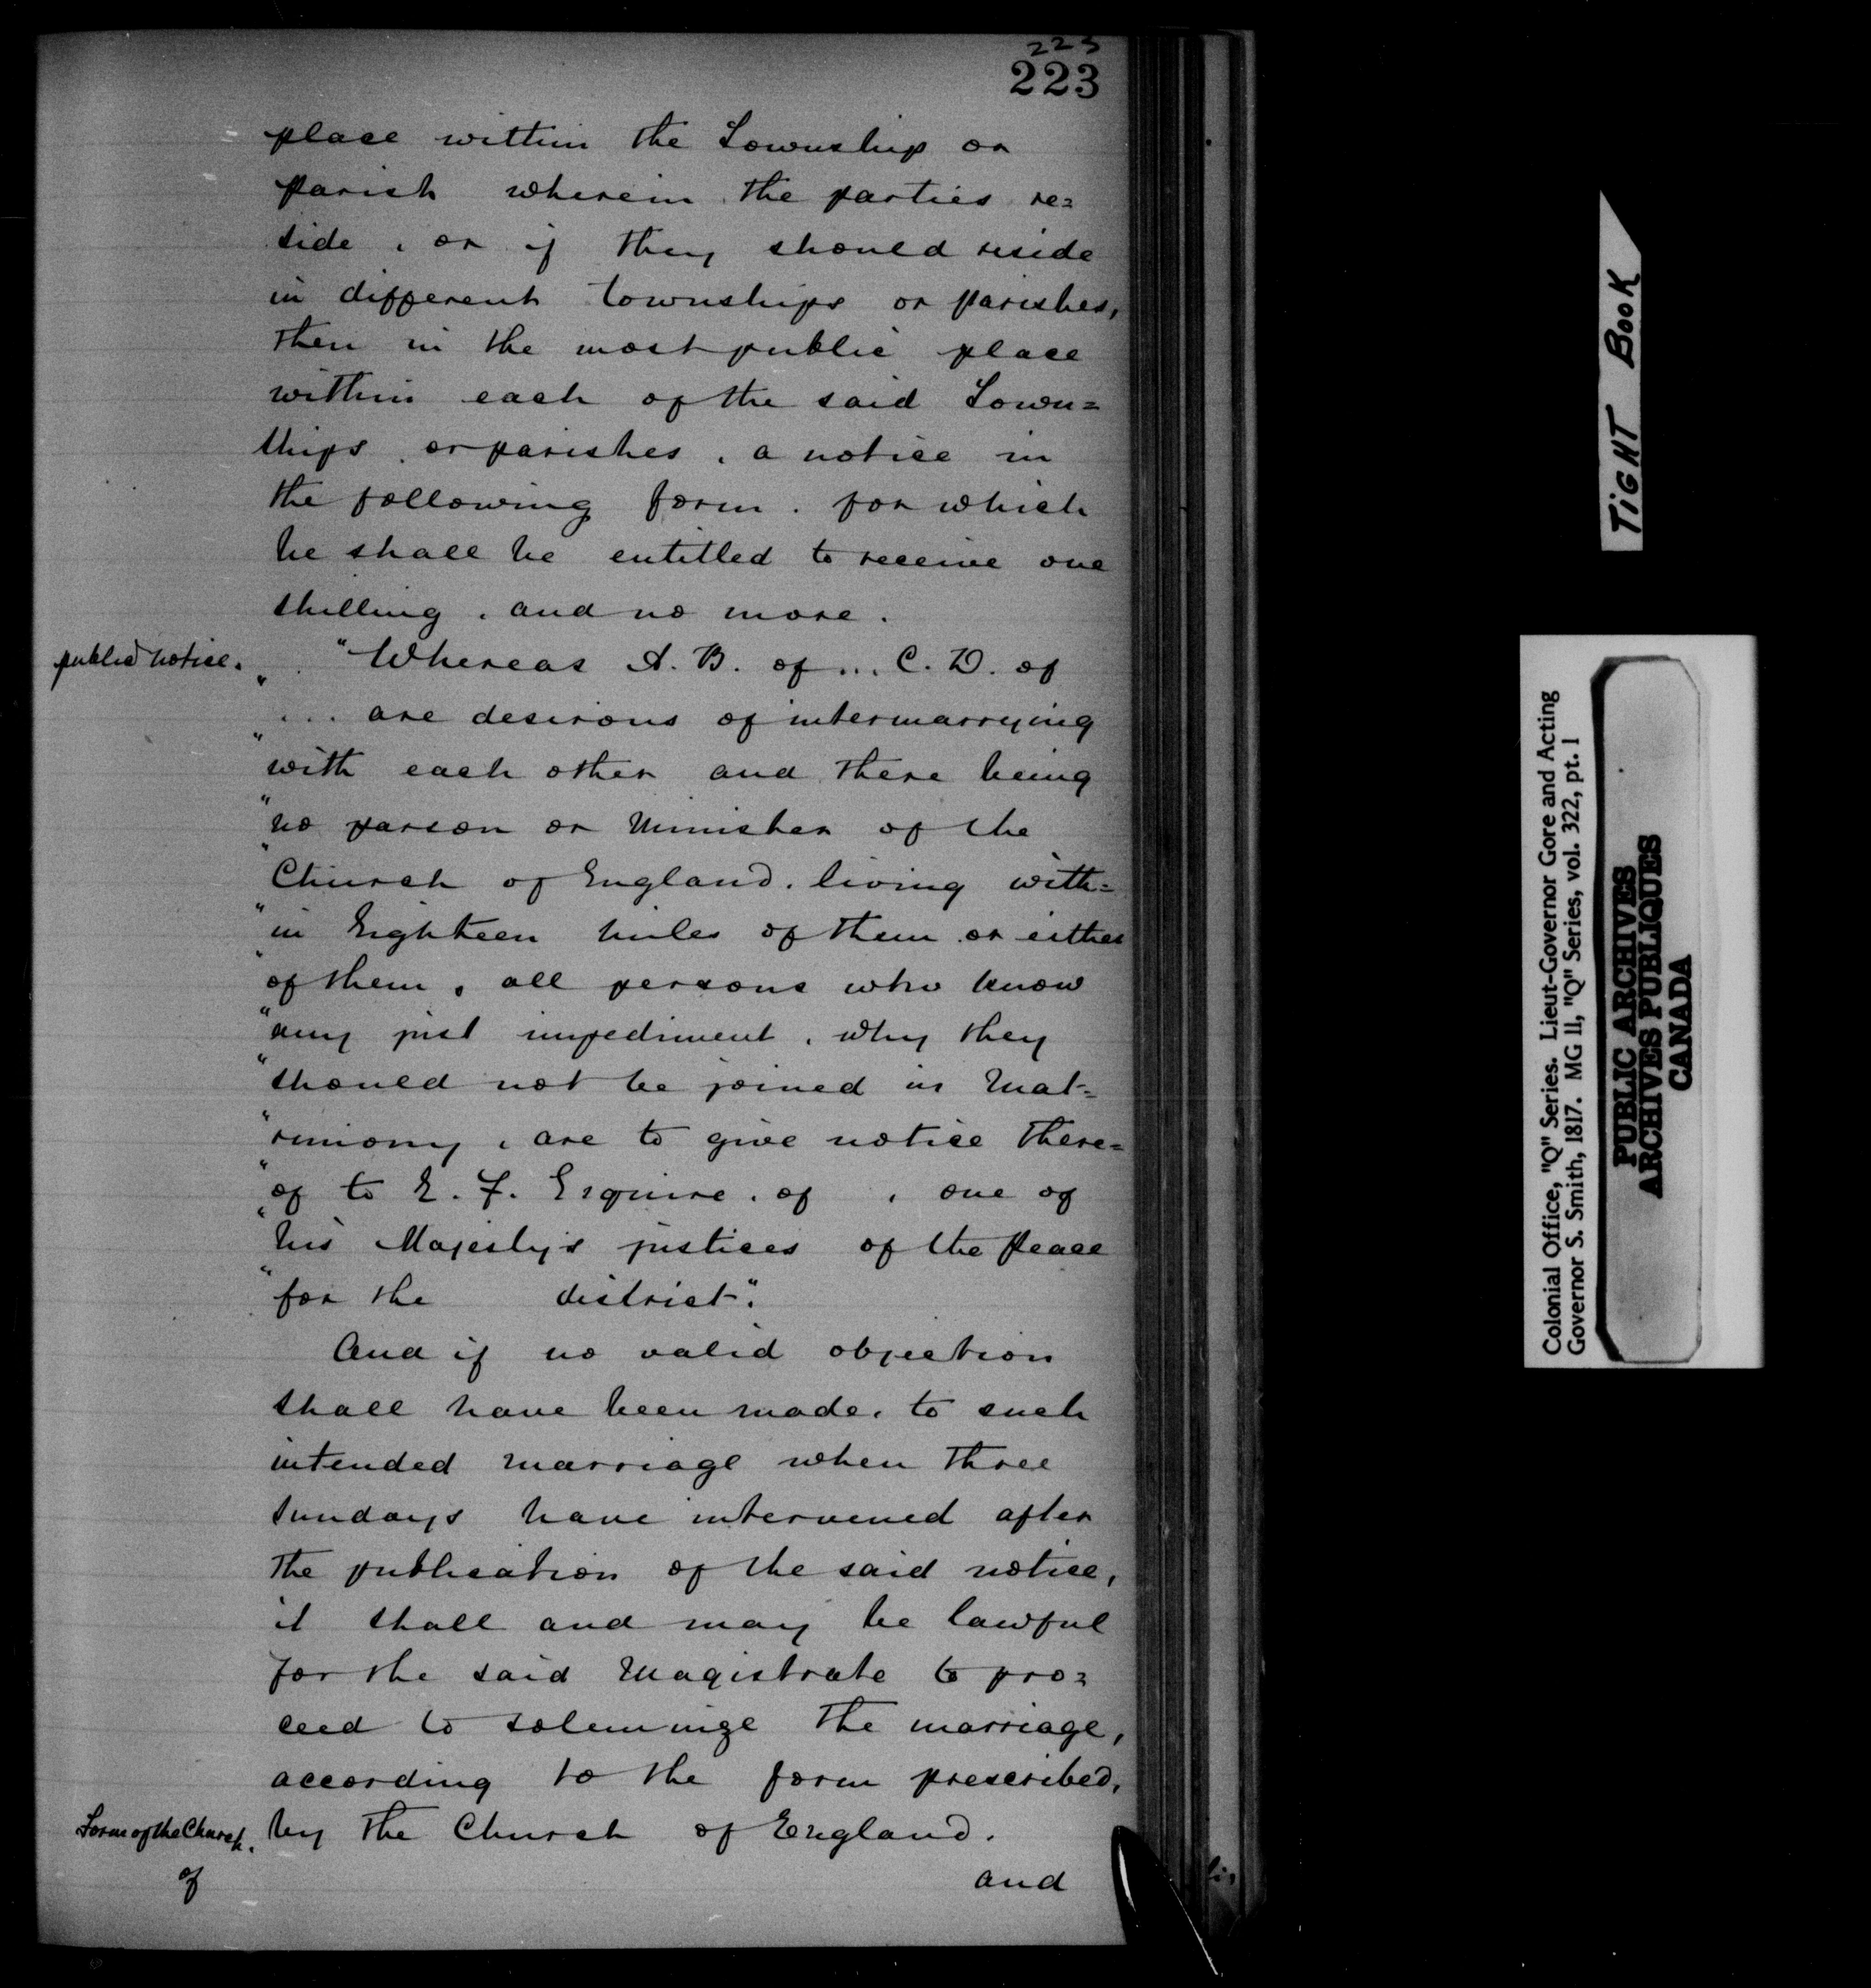 223
223
place within the Township or
parish wherein the parties re=
side, or if they should reside
in different townships or parishes,
then in the most public place
within each of the said Town=
ships, or parishes, a notice in
the following form, for which
he shall be entitled to receive one
shilling, and no more.
public notice.
"Whereas A. B. of ... C. D. of
"... are desirous of intermarrying
"with each other and there being
"no parson or Minister of the
"Church of England, living with=
"in Eighteen miles of them or either
"of them, all persons who know
"any just impediment, why they
"should not be joined in Mat=
"rimony, are to give notice there=
"of to E. F. Esquire, of , one of
"his Majesty's justices of the peace
"for the district".
And if no valid objection
shall have been made, to such
intended marriage when three
sundays have intervened after
the publication of the said notice,
it shall and may be lawful
for the said Magistrate to pro=
ceed to solemnize the marriage,
according to the form prescribed,
by the Church of England.
Form of the Church.
of
and
TiGHT BOOK
Colonial Office, "Q" Series. Lieut-Governor Gore and Acting
Governor S. Smith, 1817. MG 11, "Q" Series, vol. 322, pt. 1
PUBLIC ARCHIVES
ARCHIVES PUBLIQUES
CANADA